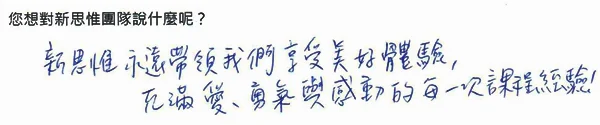 您想對新思惟團隊說什麼呢？
新思惟永遠帶領我們享受美好體驗，
充滿愛、勇氣與感動的每一次課程經驗！